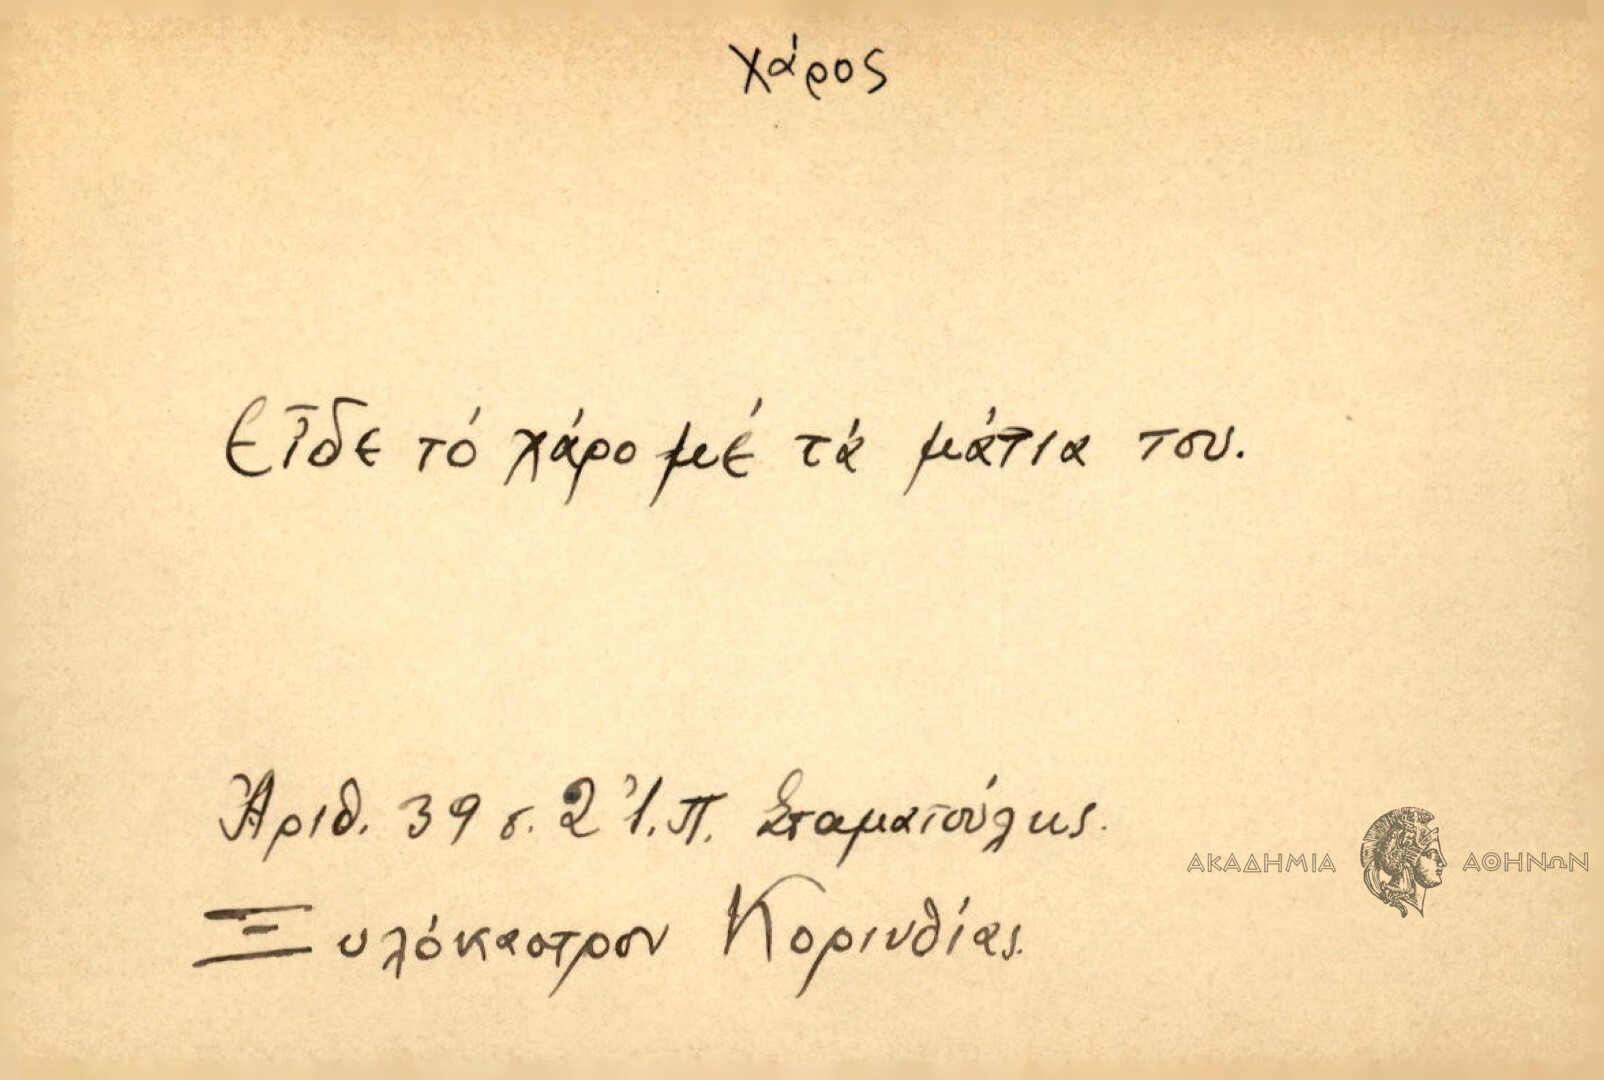 χάρος
Εἶδε τό χάρο μέ τά μάτια του.
Ἀριθ. 39 σ. 2 Ἰ. Π. Σταματούλης.
Ξυλόκαστρον Κορινθίας.
ΑΚΑΔΗΜΙΑ ΑΘΗΝΩΝ